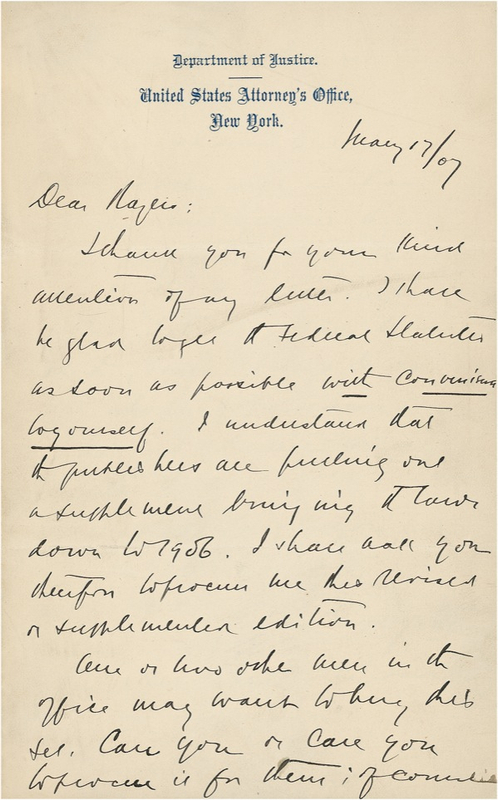 Department of Justice.
United States Attorney's Office,
New York.
May 17/07
Dear Rogers:
I thank you for your kind
attention of my letter. I shall
be glad to get the Federal Statutes
as soon as possible with convenience
to yourself. I understand that
the publishers are putting out
a supplement bringing the laws
down to 1906. I shall ask you
therefore to procure me this revised
or supplemented edition.
One or two other men in the
office may want to buy this
set. Can you or care you
to procure it for them; of course